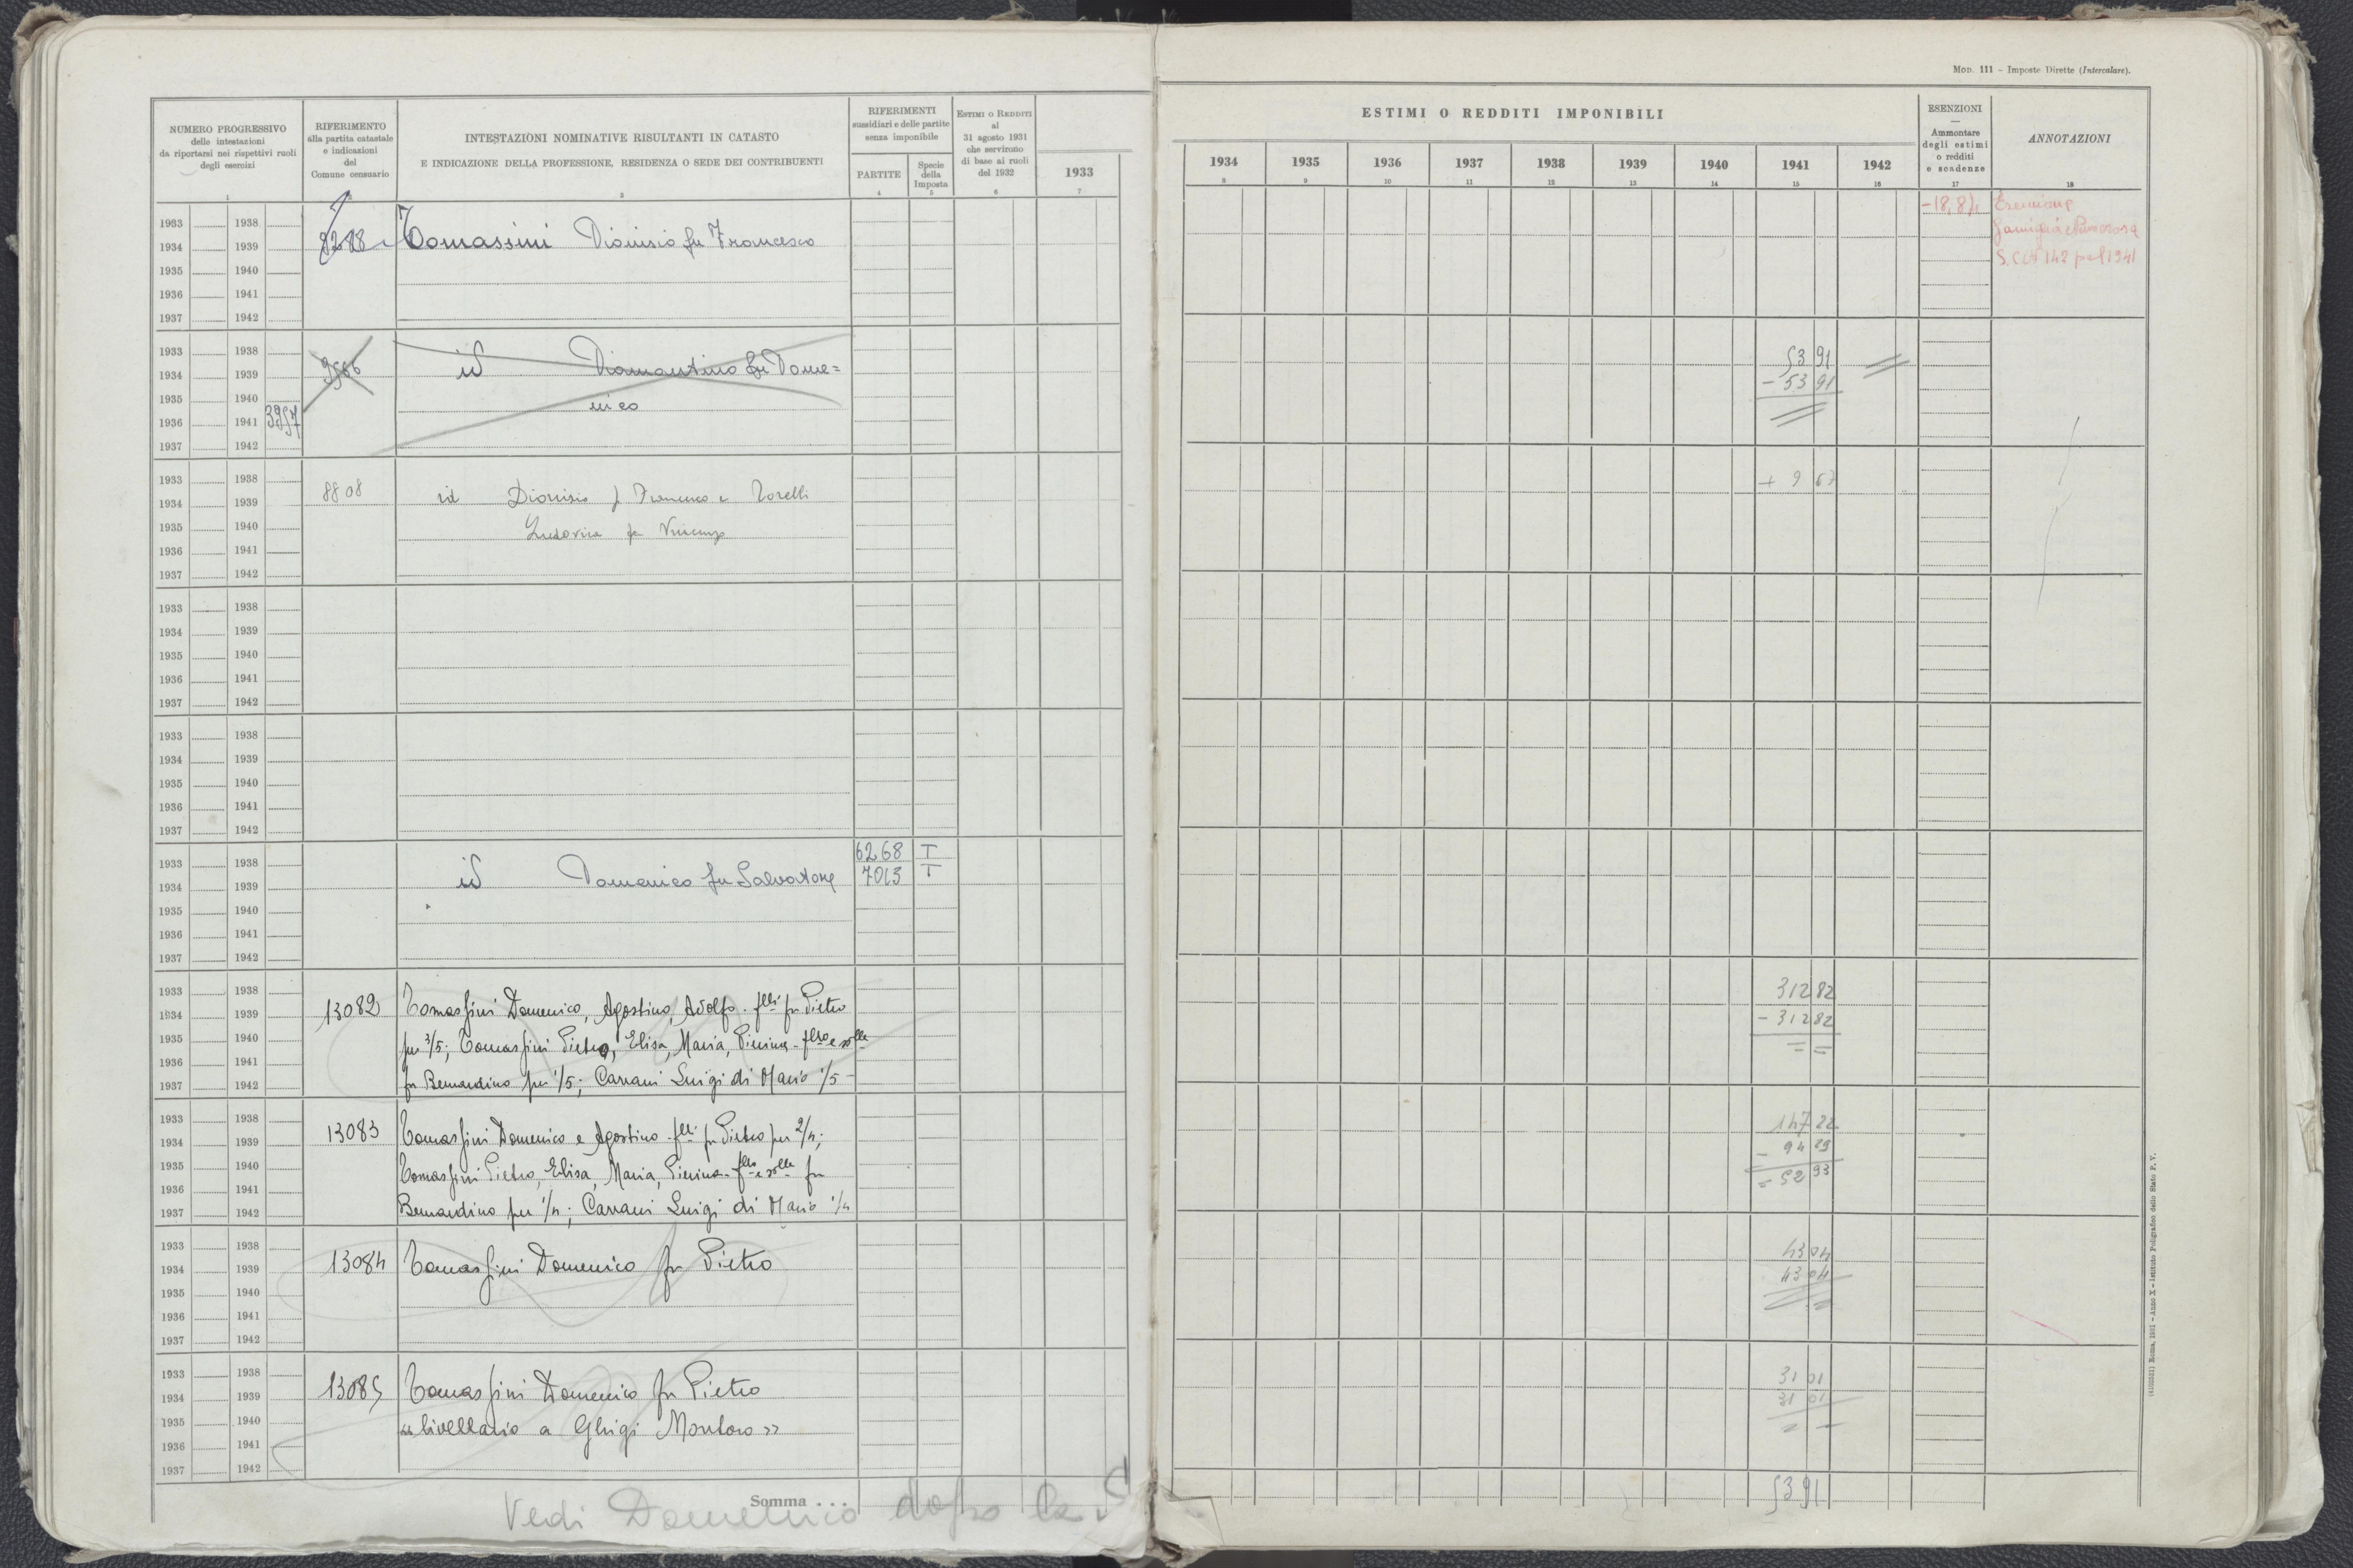 MOD. 111 – Imposte Dirette (Intercalare).
NUMERO PROGRESSIVO
delle intestazioni
da riportarsi nei rispettivi ruoli
degli esercizi
1
RIFERIMENTO
alla partita catastale
e indicazioni
del
Comune censuario
INTESTAZIONI NOMINATIVE RISULTANTI IN CATASTO
E INDICAZIONE DELLA PROFESSIONE, RESIDENZA O SEDE DEI CONTRIBUENTI
3
RIFERIMENTI
sussidiari e delle partite
senza imponibile
PARTITE
4
Specie
della
Imposta
5
ESTIMI O REDDITI
al
31 agosto 1931
che servirono
di base ai ruoli
del 1932
6
1933
7
ESTIMI O REDDITI IMPONIBILI
1934 1935 1936 1937 1938 1939 1940 1941 1942
8 9 10 11 12 13 14 15 16
ESENZIONI
—
Ammontare
degli estimi
o redditi
e scadenze
17
ANNOTAZIONI
18
1933 1938
1934 1939 Tomassini Dionisio fu Francesco
1935 1940
1936 1941
1937 1942
Esenzione
famiglia numerosa
1933 1938
1934 1939 9566 id Diamantino fu Dome=
1935 1940 nico
1936 1941 3957
1937 1942
53 91
- 53 91
1933 1938
1934 1939 8808 id Dionisio f Francesco e Torelli
1935 1940 Ludovica fu Vincenzo
1936 1941
1937 1942
+ 9 67
1933 1938
1934 1939
1935 1940
1936 1941
1937 1942
1933 1938
1934 1939
1935 1940
1936 1941
1937 1942
1933 1938 6268 T
1934 1939 id Domenico fu Salvatore 7013 T
1935 1940
1936 1941
1937 1942
1933 1938
1934 1939 13082 Tomassini Domenico, Agostino, Adolfo. flli fu Pietro
1935 1940 per 3/5; Tomassini Pietro, Elisa, Maria, Pierina - fllo e solle
1936 1941
1937 1942 fu Bernardino per 1/5; Carrani Luigi di Mario 1/5 -
312 82
- 312 82
= =
1933 1938
1934 1939 13083 Tomassini Domenico e Agostino - flli fu Pietro per 2/4;
1935 1940 Tomassini Pietro, Elisa, Maria, Pierina - fllo e solle fu
1936 1941
1937 1942 Bernardino per 1/4; Carrani Luigi di Mario 1/4
147 22
- 94 29
= 52 93
1933 1938
1934 1939 13084 Tomassini Domenico fu Pietro
1935 1940
1936 1941
1937 1942
43 04
43 04
1933 1938
1934 1939 13085 Tomassini Domenico fu Pietro
1935 1940 «livellario a Ghigi Montoro»
1936 1941
1937 1942
31 01
31 01
Somma . . .
53 91
Vedi Domenico dopo la S
(4102551) Roma, 1931 - Anno X - Istituto Poligrafico dello Stato P. V.